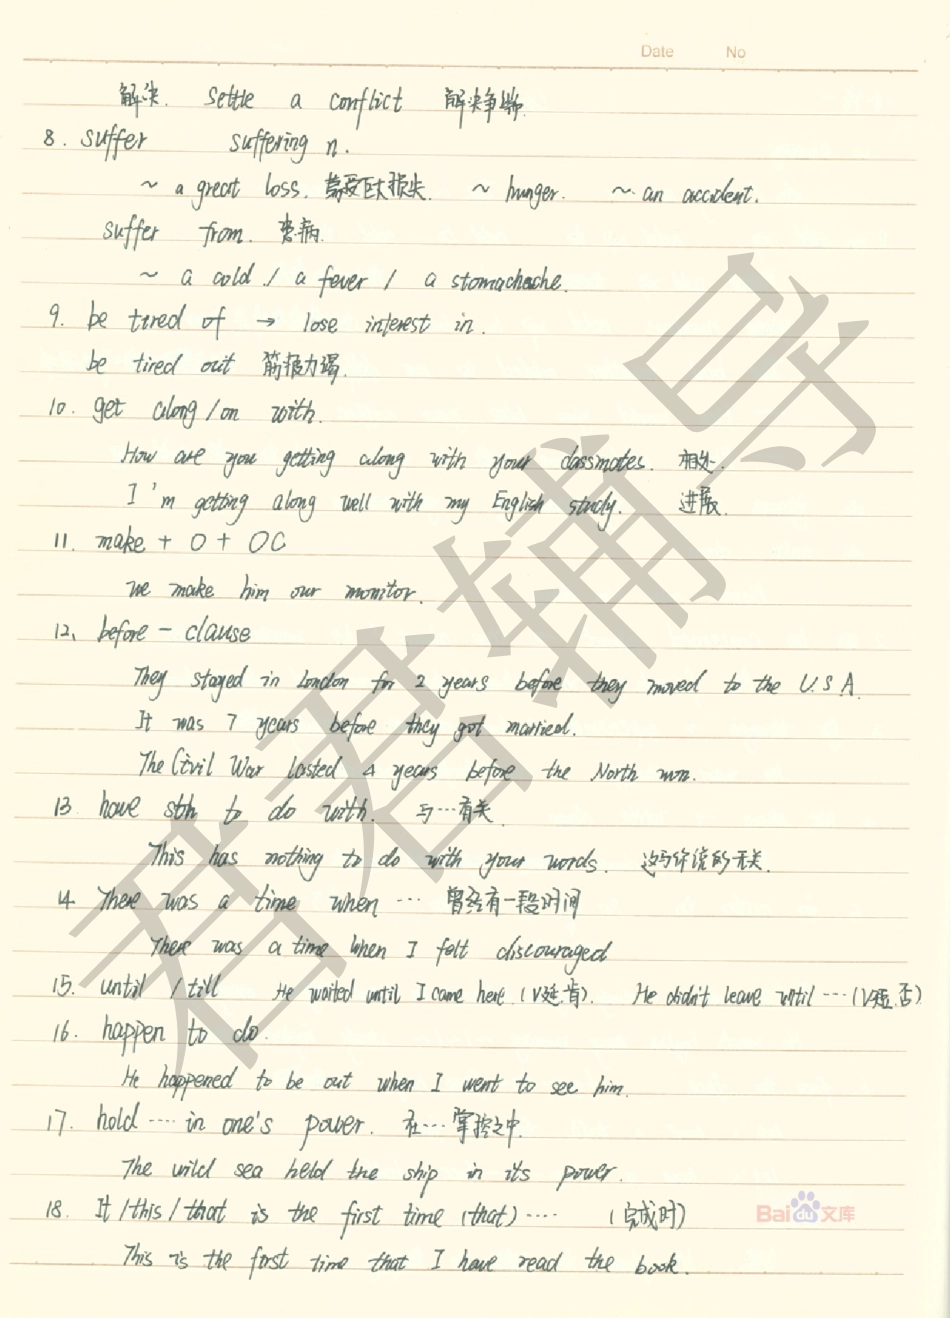 Date No
解决. settle a conflict 解决争端
8. suffer suffering n.
~ a great loss. 蒙受巨大损失. ~ hunger. ~ an accident.
suffer from. 患病.
~ a cold / a fever / a stomachache.
9. be tired of → lose interest in.
be tired out 筋疲力竭.
10. get along / on with.
How are you getting along with your classmates. 相处.
I'm getting along well with my English study. 进展.
11. make + O + OC
we make him our monitor.
12. before - clause
They stayed in London for 2 years before they moved to the U.S.A.
It was 7 years before they got married.
The Civil War lasted 4 years before the North won.
13 have sth to do with. 与…有关.
This has nothing to do with your words. 这与你说的无关.
14. There was a time when … 曾经有一段时间
There was a time when I felt discouraged
15. until / till He waited until I came here. (V延.肯). He didn't leave until … (V短.否)
16. happen to do.
He happened to be out when I went to see him.
17. hold … in one's power. 在…掌控之中.
The wild sea held the ship in its power.
18. It / this / that is the first time (that) … (完成时)
This is the first time that I have read the book.
君君辅导
Baidu文库